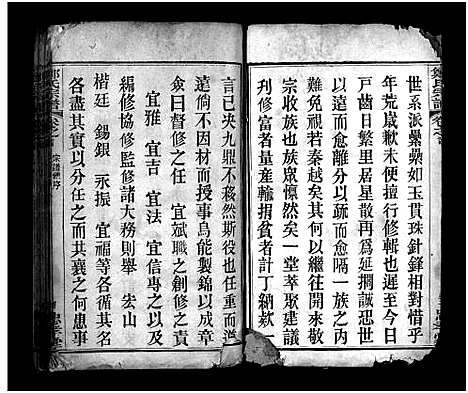 世系派縣縣如玉貫珠針鋒相對惜乎
年荒歲歉未便擅行修輯也遲至今日
戸齒日繁里居星散再為延擱誠恐世
遠而愈離分以踈而愈隔一族之內
難免視若秦越矣其何以繼往開來敬
宗收族也族眾慨然矣一堂萃聚建議
利修富者量產輸捐貧者計丁納欵
言已夬九鼎不移然斯役也任重而道
遠倘不因材而授事烏能製錦以成章
僉曰督修之任 宜斌職之創修之責
宜雅 宜吉 宜法 宜信專之以及
編修協修監修諸大務則舉 宏山
楷廷 錫銀 永振 宜福等各循其名
各盡其實以分任之而共襄之何患事
鄭氏宗譜
卷之首
宗譜總序